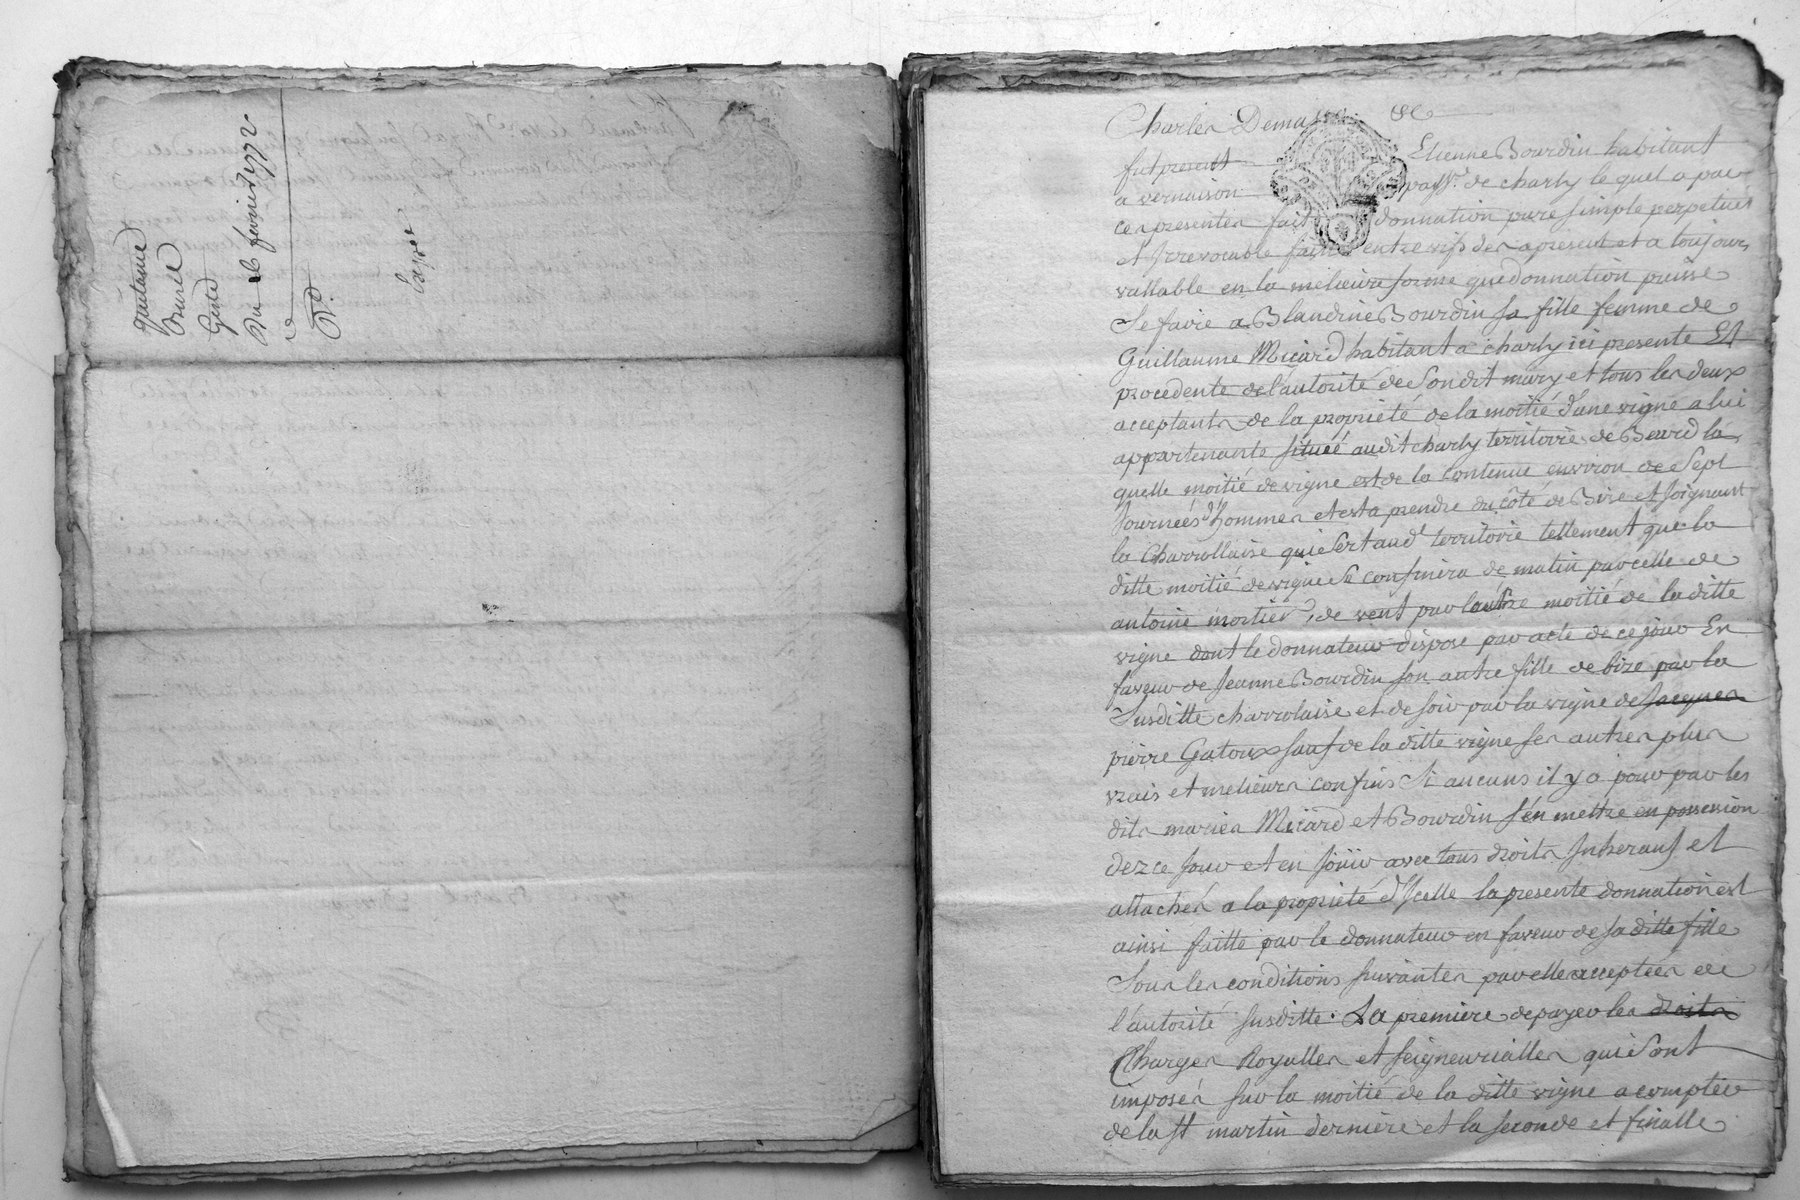 quitance
Gente
Du 26 fevrier 1772
Expee
Charles Dema
fut present Etienne Bourdin habitant
a vernaison parr.e de charly le quel a par
ces presentes fait donnation pure simple perpetuel
et Irrevocable faitte entre vifs des apresent et a toujours
vallable en la melieure forme que donnation puisse
Se faire a Blandine Bourdin sa fille femme de
Guillaume Micard habitant a charly ici presente Et
procedente de l'autorité de Sondit mary et tous les deux
acceptants de la propriété de la moitié d'une vigne a lui
appartenante situeé audit charly territoire de Beurd la
quelle moitié de vigne est de la contenue environ de Sept
Journeés d'hommes et est a prendre du côté de Bize et Joignant
la Charrollaise qui Sert aud.t territoire tellement que la
ditte moitié de vigne Se confinera de matin par celle de
antoine mortier, de vent par lautre moitié de la ditte
vigne dont le donnateur dispose par acte de ce jour En
faveur de Jeanne Bourdin son autre fille de bize par la
Susditte charrolaise et de soir par la vigne de Jacques
pierre Gatoux sauf de la ditte vigne ses autres plus
vrais et melieurs confins Si aucuns il y a pour par les
dits mariés Micard et Bourdin s'en mettre en possession
dez ce jour et en joüir avec tous droits Inherans et
attachés a la propriété d'Icelle la presente donnation est
ainsi faitte par le donnateur en faveur de sa ditte fille
Sous les conditions suivantes par elle acceptées de
l'autorité susditte. La premiere de payer les droits
Charges Royalles et seigneurialles qui Sont
imposés sur la moitié de la ditte vigne a compter
de la st martin derniere et la seconde et finalle